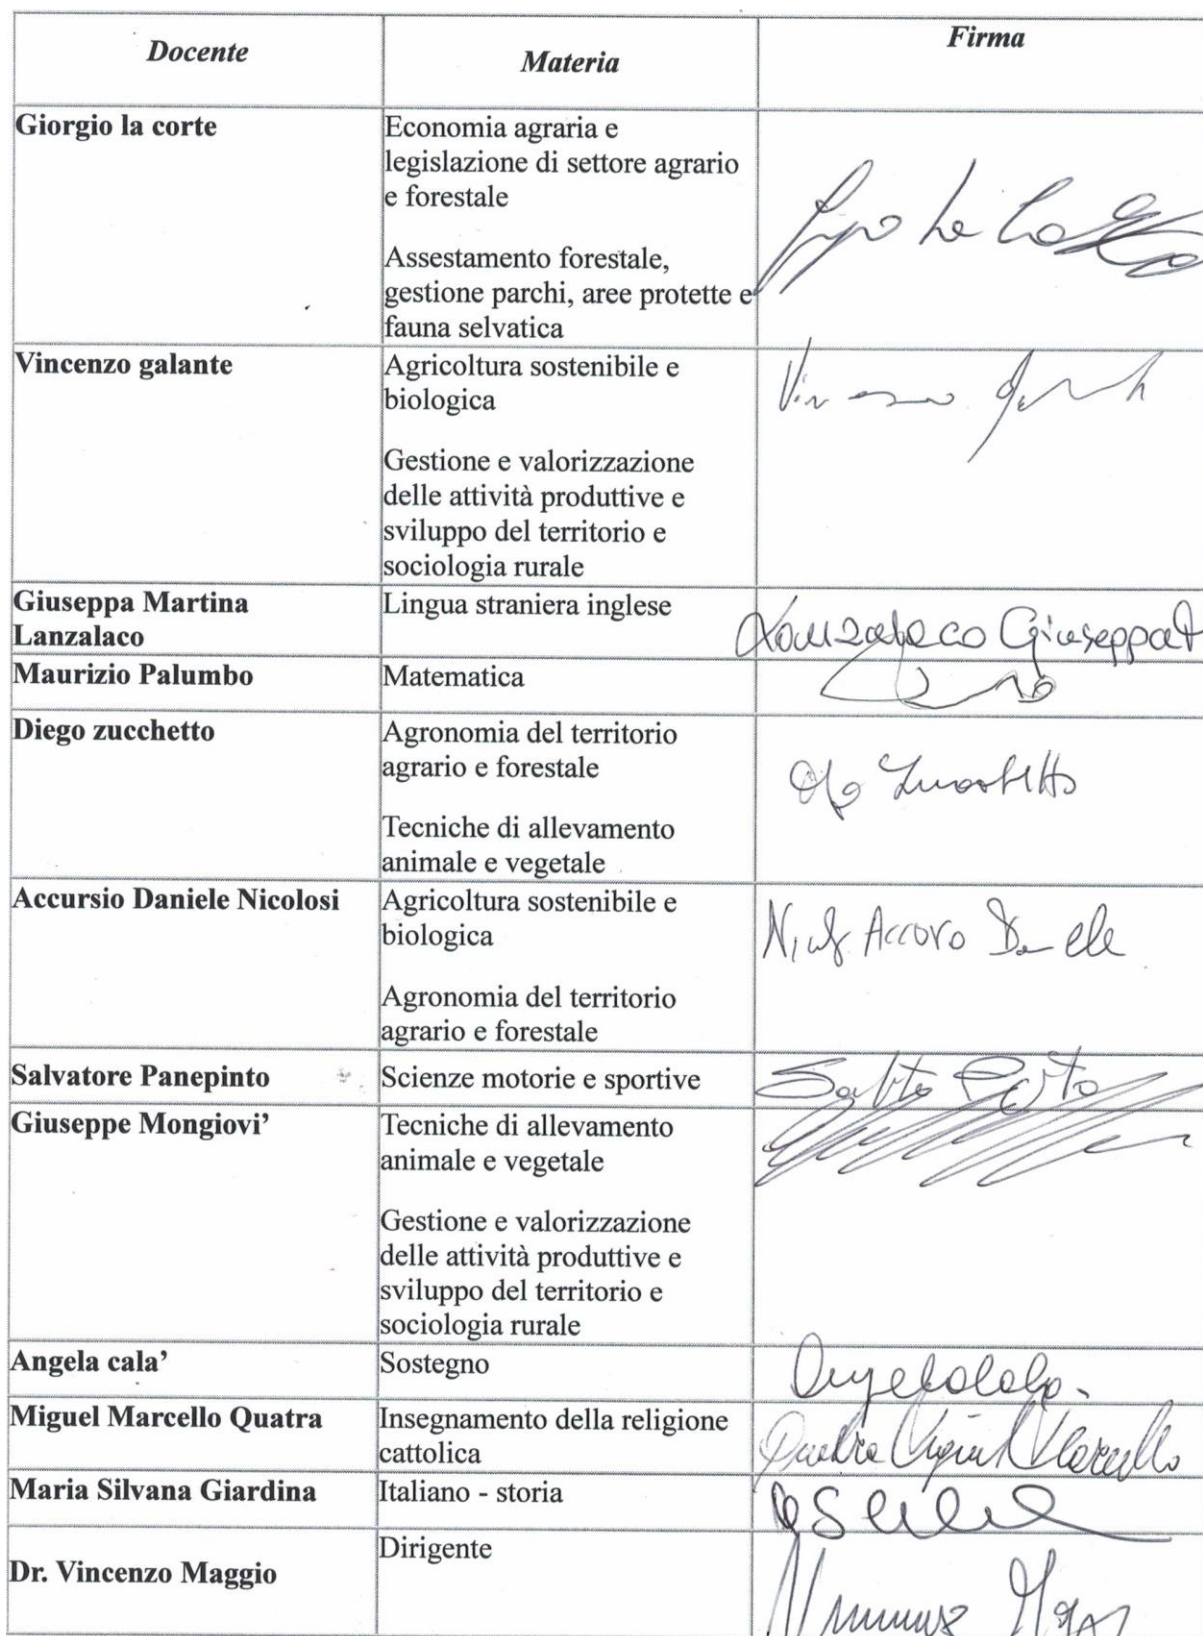 Docente
Materia
Firma
Giorgio la corte
Economia agraria e
legislazione di settore agrario
e forestale
Assestamento forestale,
gestione parchi, aree protette e
fauna selvatica
Vincenzo galante
Agricoltura sostenibile e
biologica
Gestione e valorizzazione
delle attività produttive e
sviluppo del territorio e
sociologia rurale
Giuseppa Martina
Lanzalaco
Lingua straniera inglese
Lanzalaco Giuseppa
Maurizio Palumbo
Matematica
Diego zucchetto
Agronomia del territorio
agrario e forestale
Tecniche di allevamento
animale e vegetale
Accursio Daniele Nicolosi
Agricoltura sostenibile e
biologica
Agronomia del territorio
agrario e forestale
Salvatore Panepinto
Scienze motorie e sportive
Giuseppe Mongiovi’
Tecniche di allevamento
animale e vegetale
Gestione e valorizzazione
delle attività produttive e
sviluppo del territorio e
sociologia rurale
Angela cala’
Sostegno
Miguel Marcello Quatra
Insegnamento della religione
cattolica
Quatra Miguel Marcello
Maria Silvana Giardina
Italiano - storia
Dr. Vincenzo Maggio
Dirigente